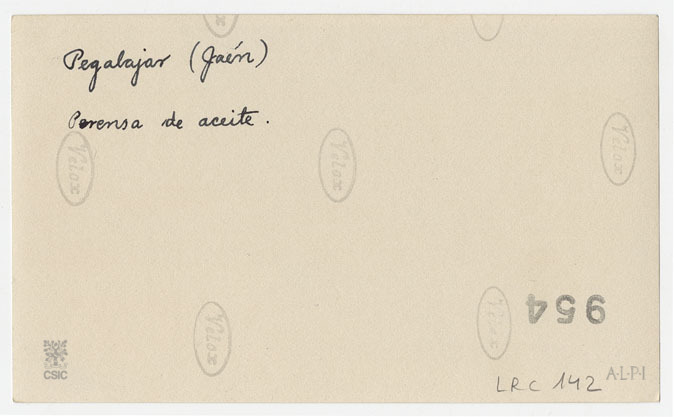 Pegalajar (Jaén)
Prensa de aceite.
Velox
Velox
Velox
Velox
Velox
954
CSIC
LRC 142
A·L·P·I